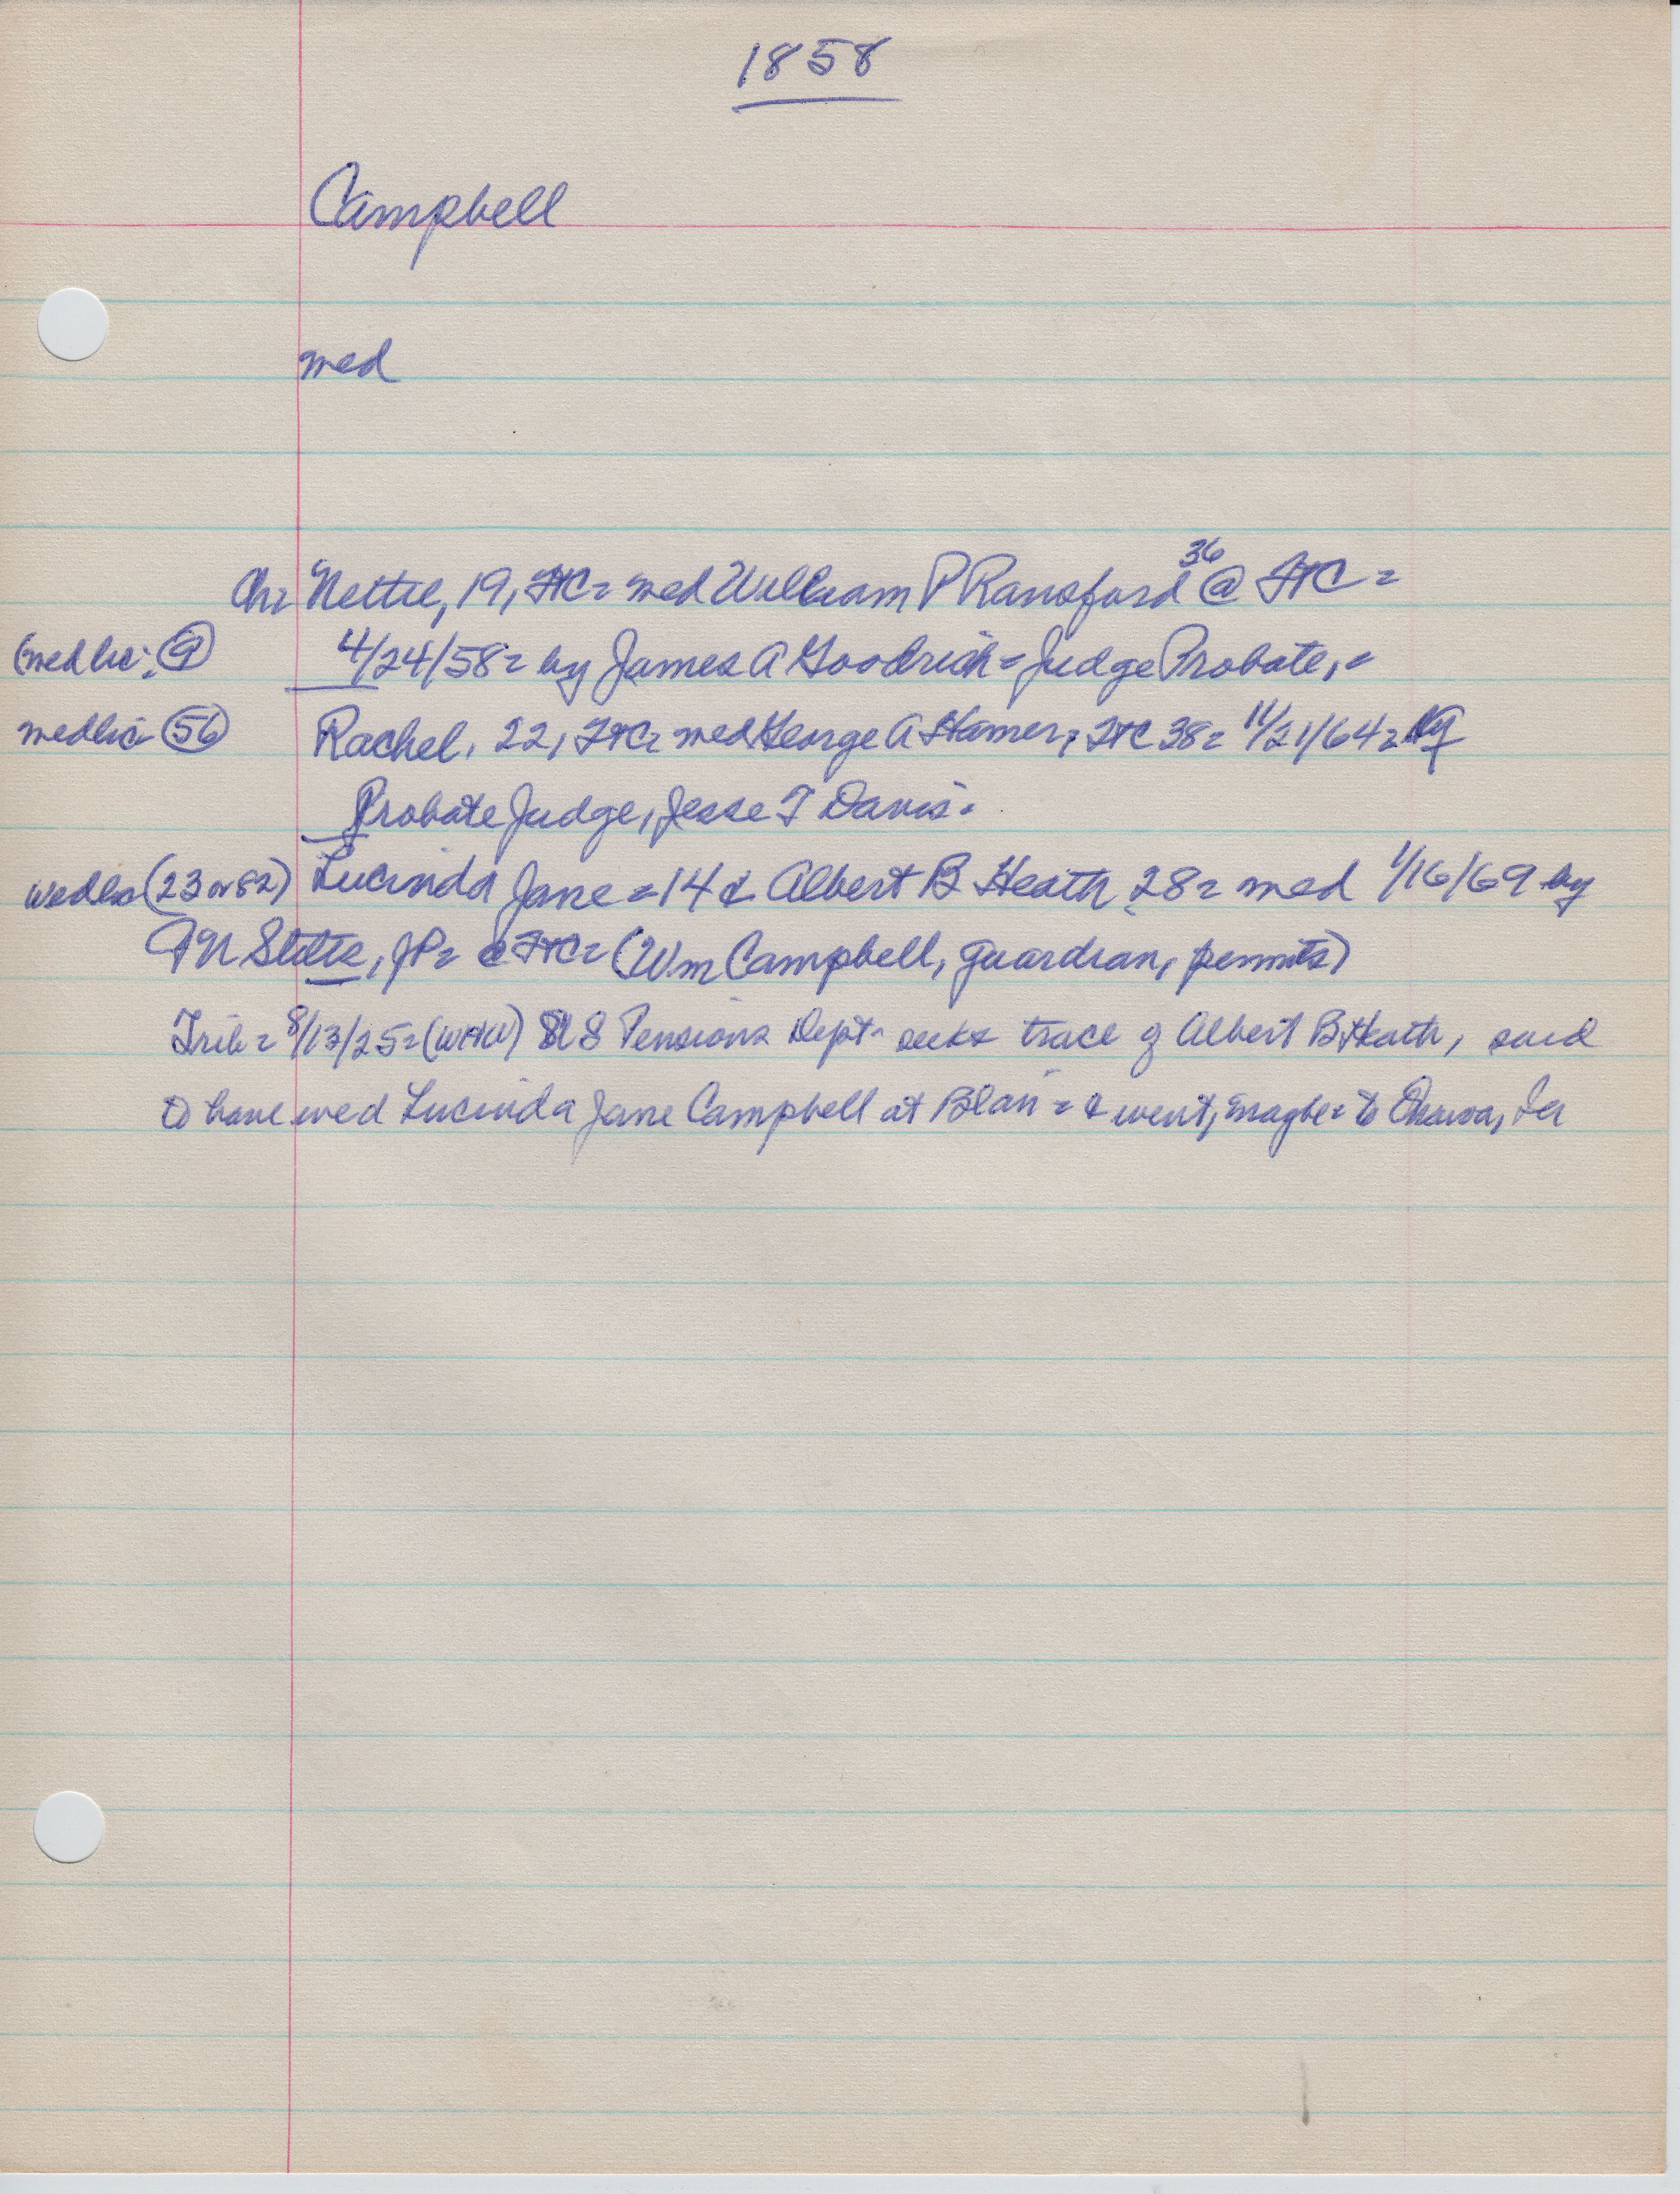 1858
Campbell
wed
Ch= Nettie, 19, FtC= wed William P Ransford 36 @ FtC =
(wed lic: 9) 4/24/58= by James A Goodrich = Judge Probate, =
wedlic 56 Rachel, 22, FtC= wed George A Hamer, FtC 38= 11/21/64= by
Probate Judge, Jesse T Davis.
(23 or 82) Lucinda Jane = 14 & Albert B Heath 28= wed 1/16/69 by
JP= @ FtC= (Wm Campbell, guardian, permits)
Trib = 8/13/25= (WHW) U S Pensions Dept seeks trace of Albert B Heath, said
to have wed Lucinda Jane Campbell at Blair = & went, maybe = to Onawa, Ia